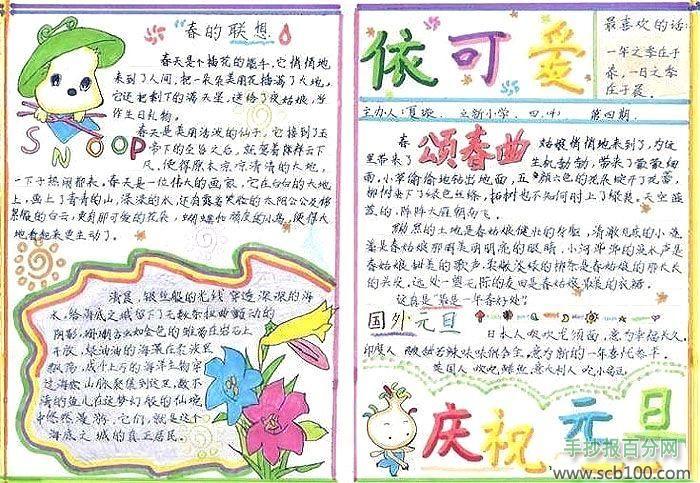 春的联想
春天是个插花的能手,它悄悄地
来到了人间,把一朵朵美丽花插满了大地,
它还把剩下的满天星,送给了夜姑娘,当
作生日礼物。
春天是美丽活泼的仙子,它接到了玉
帝下的圣旨之后,就驾着祥云下
凡,使得原本凉凉清清的大地,
一下子热闹
春天是一位伟大的画家,它在白白的大地
上,画上了青青的山,绿绿的水,还有露着笑脸的太阳公公及
的白云,更有那可爱的花朵,蝴蝶和顽皮的小鸟,使得大
地看起来更生动了。
SNOOP
清晨,银丝般的光线穿透深深的海
水,给海底之城留下了无数条扭曲颤动的
阴影,珊瑚
在岩石上
开放,绿油油的海藻在
飘荡,成千上万的海洋生物穿
过海
山脉聚集到这里,数不
清的鱼儿在这梦幻般的仙境
中悠然漫游。它们,就是这个
海底之城的真正居民。
依可爱
最喜欢的话:
一年之季在于
春,一日之季
在于晨。
主办人:夏璇
立新小学
四.
第四期
颂春曲
春
姑娘悄悄地来到了,为这
里带来了
生机勃勃,带来了
细
雨,小草偷偷地钻出地面,五颜六色的花朵绽开了花蕾,
柳树垂下了绿色丝绦,
树也不知何时上了绿装。天空蓝
蓝的,阵阵大雁朝南飞。
黝黑的土地是春姑娘健米的
,清澈见底的小
是春姑娘那双美丽明亮的眼睛,小河
的流水声是
春姑娘甜美的歌声,
的柳条是春姑娘的那长长
的头发,远处一望无际的麦田是春姑娘
的衣裙。
这真是"最是一年春好处"。
国外元旦
日本人吃
面,意为幸福长久。
印度人
味味俱全,意为新的一年喜忧参半。
英国人
吃
意大利人吃
庆祝元旦
手抄报百分网
www.scb100.com